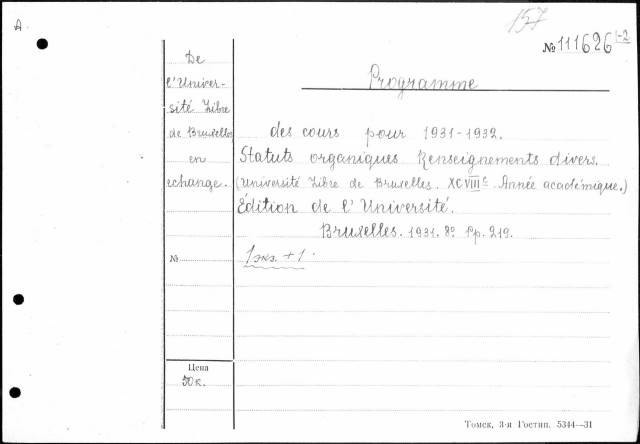 A
157
№ 111626 1-2
De
l'Univer-
sité Libre
de Bruxelles
en
echange.
Programme
des cours pour 1931-1932.
Statuts organiques Renseignements divers.
(Université Libre de Bruxelles. XCVIIIe Année académique.)
Édition de l'Université.
Bruxelles. 1931. 8º. Pp. 219.
№
1 экз. + 1.
Цена
50 к.
Томск, 3-я Гостип. 5344—31